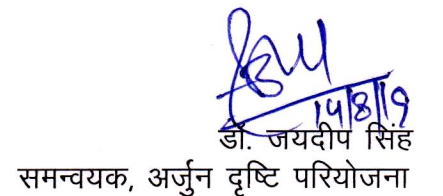 14/8/19
डॉ. जयदीप सिंह
समन्वयक, अर्जुन दृष्टि परियोजना